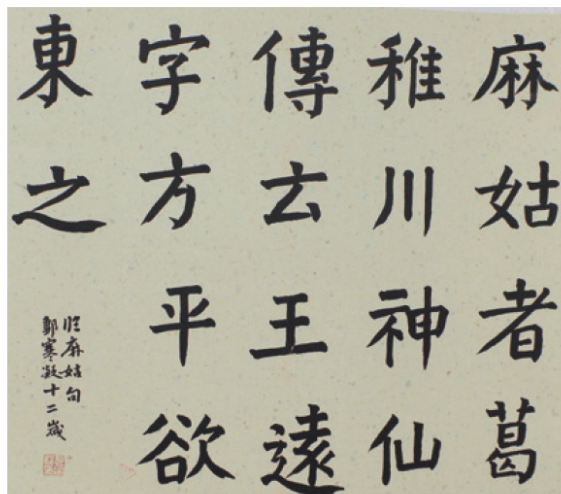 麻姑者葛
稚川神仙
傳云王遠
字方平欲
東之
臨麻姑句
鄭寒凝十二歲